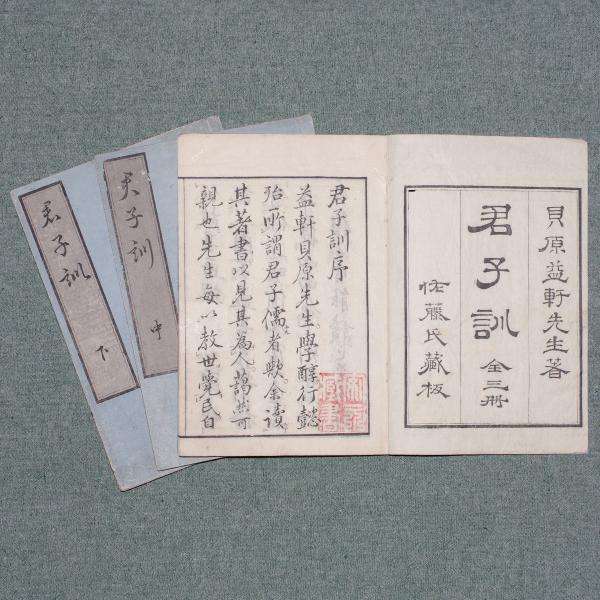 貝原益軒先生著
君子訓 全三冊
佐藤氏藏板
君子訓序
益軒貝原先生學醇行懿
殆所謂君子儒者歟余讀
其著書以見其為人藹然可
親也先生每以教世覺民自
君子訓
中
君子訓
下